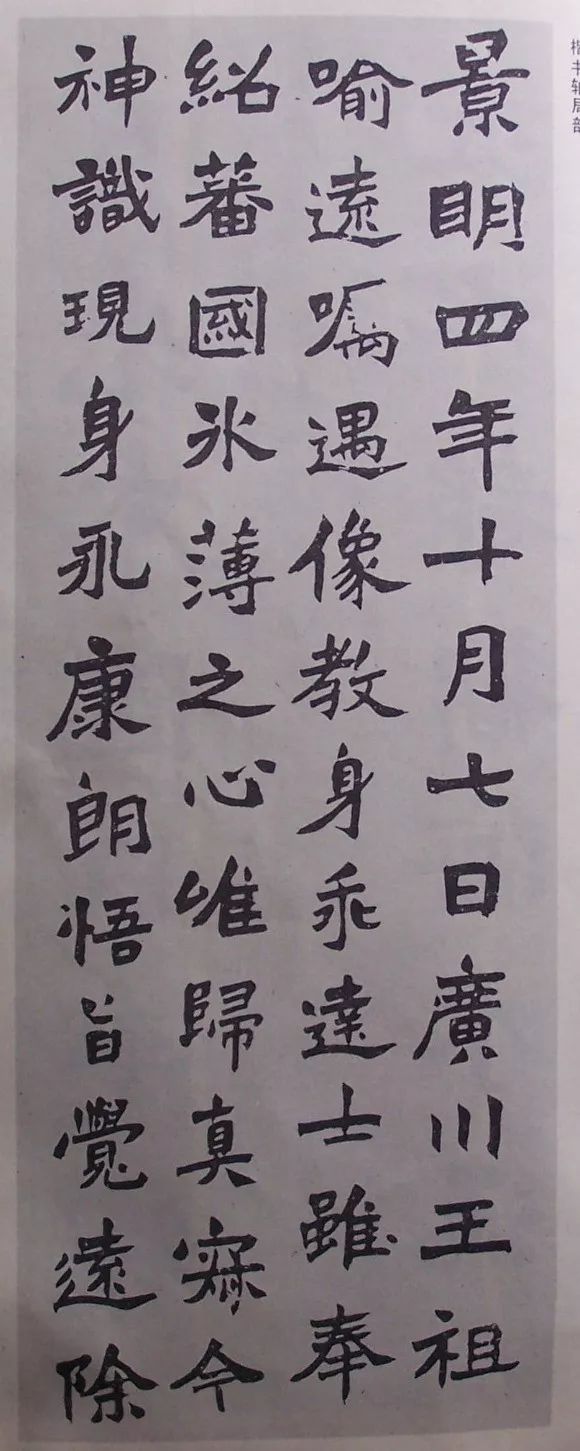 楷书轴局部
景明四年十月七日廣川王祖
喻遠囑遇像教身乖達士雖奉
紹蕃國冰薄之心唯歸真寂今
神識現身永康朗悟旨覺遠除